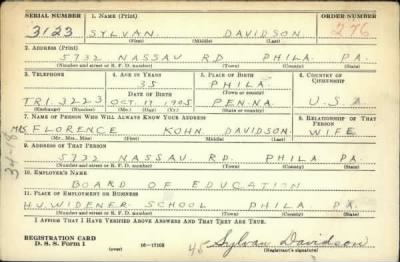 SERIAL NUMBER 1. NAME (Print) ORDER NUMBER
3123 SYLVAN DAVIDSON 276
(First) (Middle) (Last)
2. ADDRESS (Print)
5732 NASSAU RD PHILA PA.
(Number and street or R. F. D. number) (Town) (County) (State)
3. TELEPHONE 4. AGE IN YEARS 5. PLACE OF BIRTH 6. COUNTRY OF CITIZENSHIP
35 PHILA.
DATE OF BIRTH (Town or county)
TRI. 3223 OCT. 17 1905 PENNA. U.S.A.
(Exchange) (Number) (Mo.) (Day) (Yr.) (State or country)
7. NAME OF PERSON WHO WILL ALWAYS KNOW YOUR ADDRESS 8. RELATIONSHIP OF THAT PERSON
MRS. FLORENCE KOHN DAVIDSON WIFE
(Mr., Mrs., Miss) (First) (Middle) (Last)
9. ADDRESS OF THAT PERSON
5732 NASSAU RD. PHILA PA.
(Number and street or R. F. D. number) (Town) (County) (State)
10. EMPLOYER'S NAME
BOARD OF EDUCATION
11. PLACE OF EMPLOYMENT OR BUSINESS
H.J. WIDENER SCHOOL PHILA PA.
(Number and street or R. F. D. number) (Town) (County) (State)
I AFFIRM THAT I HAVE VERIFIED ABOVE ANSWERS AND THAT THEY ARE TRUE.
REGISTRATION CARD
D. S. S. Form 1 (over) 16—17105 Sylvan Davidson
(Registrant's signature)